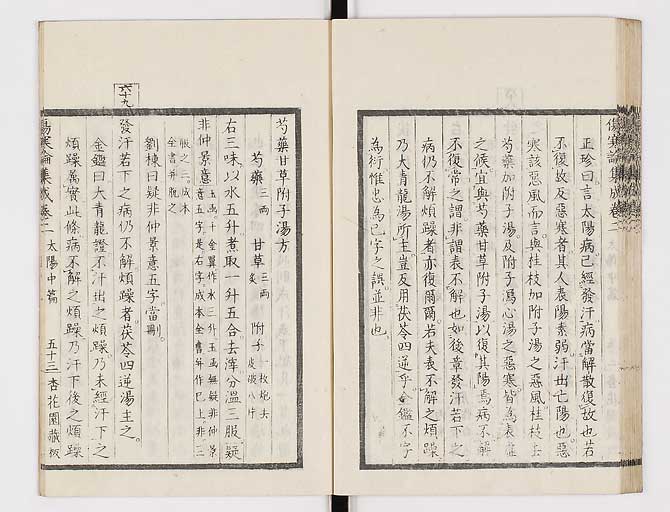 傷寒論集成卷二
正珍曰言太陽病已經發汗病當解散復故也若
不復故及惡寒者其人表陽素弱汗出亡陽也惡
寒該惡風而言與桂枝加附子湯之惡風桂枝去
芍藥加附子湯及附子瀉心湯之惡寒皆為表症
之候宜與芍藥甘草附子湯以復其陽焉病不解
不復常之謂非謂表不解也如後章發汗若下之
病仍不解煩躁者亦復爾爾若夫表不解之煩躁
乃大青龍湯所主豈及用茯苓四逆乎金鑑不字
為衍惟忠為已字之誤並非也
芍藥甘草附子湯方
芍藥三兩 甘草三兩炙 附子一枚炮去皮破八片
右三味以水五升煮取一升五合去滓分溫三服疑
非仲景意
服之三成本
全書并脫之
劉棟曰疑非仲景意五字當刪
六十九
發汗若下之病仍不解煩躁者茯苓四逆湯主之
金鑑曰大青龍證不汗出之煩躁乃未經汗下之
煩躁屬實此條病不解之煩躁乃汗下後之煩躁
傷寒論集成卷二 太陽中篇 五十三 杏花園藏板